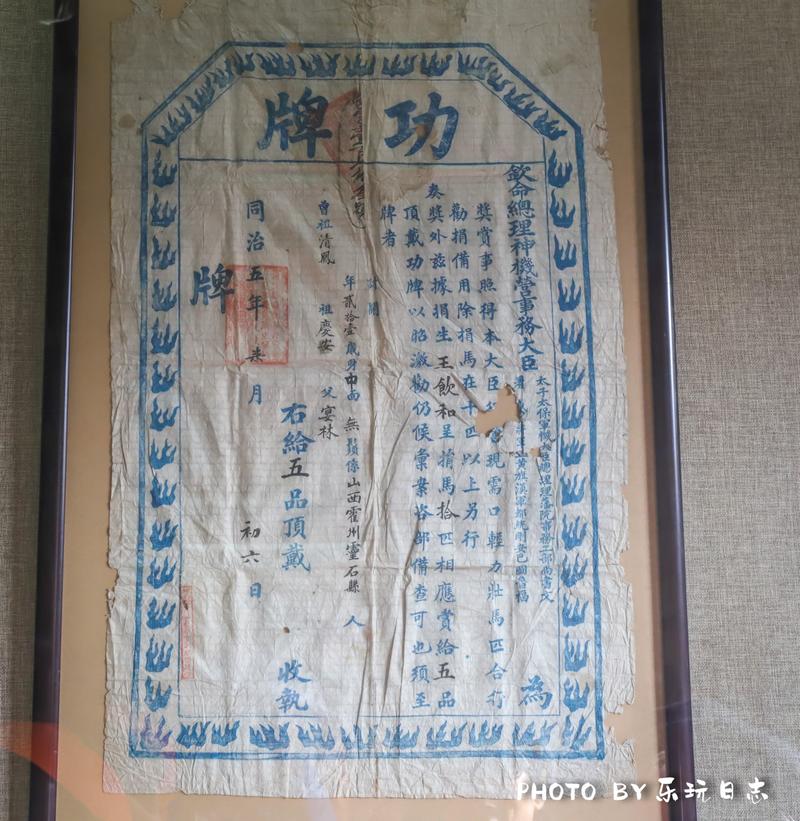 功牌
欽命總理神機營事務大臣
太子太保軍機大臣總理理藩院事務工部尚書文
黃旗漢軍都統刚安巴圖魯福
為
獎賞事照得本大臣營現需口輕力壯馬匹合行
勸捐備用除捐馬在十匹以上另行
奏獎外茲據捐生王飲和呈捐馬拾匹相應賞給五品
頂戴功牌以昭激勸仍候彙案咨部備查可也須至
牌者
計開
年貳拾壹歲身中面無鬚係山西霍州靈石縣人
曾祖清鳳 祖慶安 父宴林
右給五品頂戴 收執
同治五年柒月初六日
牌
PHOTO BY乐玩日志